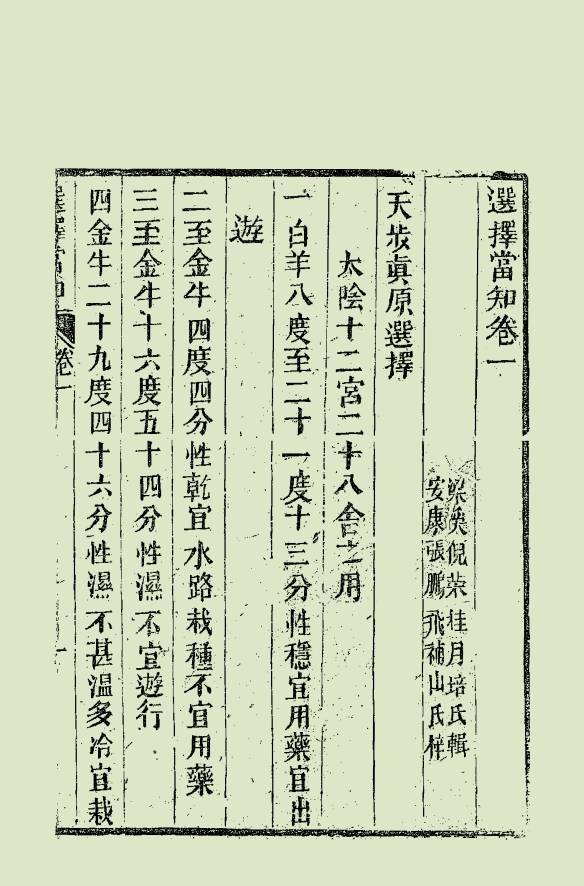 選擇當知卷一
梁溪倪荣桂月培氏輯
安康張鵬飛補山氏梓
天步眞原選擇
太陰十二宮二十八舍之用
一白羊八度至二十一度十三分性穩宜用藥宜出
遊
二至金牛四度四分性乾宜水路栽種不宜用藥
三至金牛十六度五十四分性濕不宜遊行
四金牛二十九度四十六分性濕不甚溫多冷宜栽
選擇當知 卷一 一